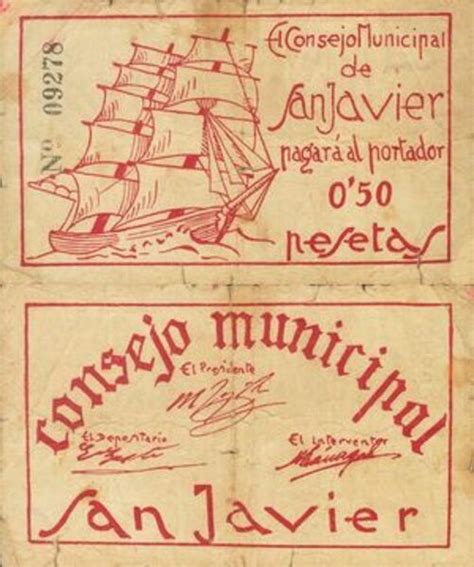 Nº 09278
El Consejo Municipal
de
San Javier
pagará al portador
0'50
pesetas
consejo municipal
El Presidente
El Depositario
El Interventor
San Javier